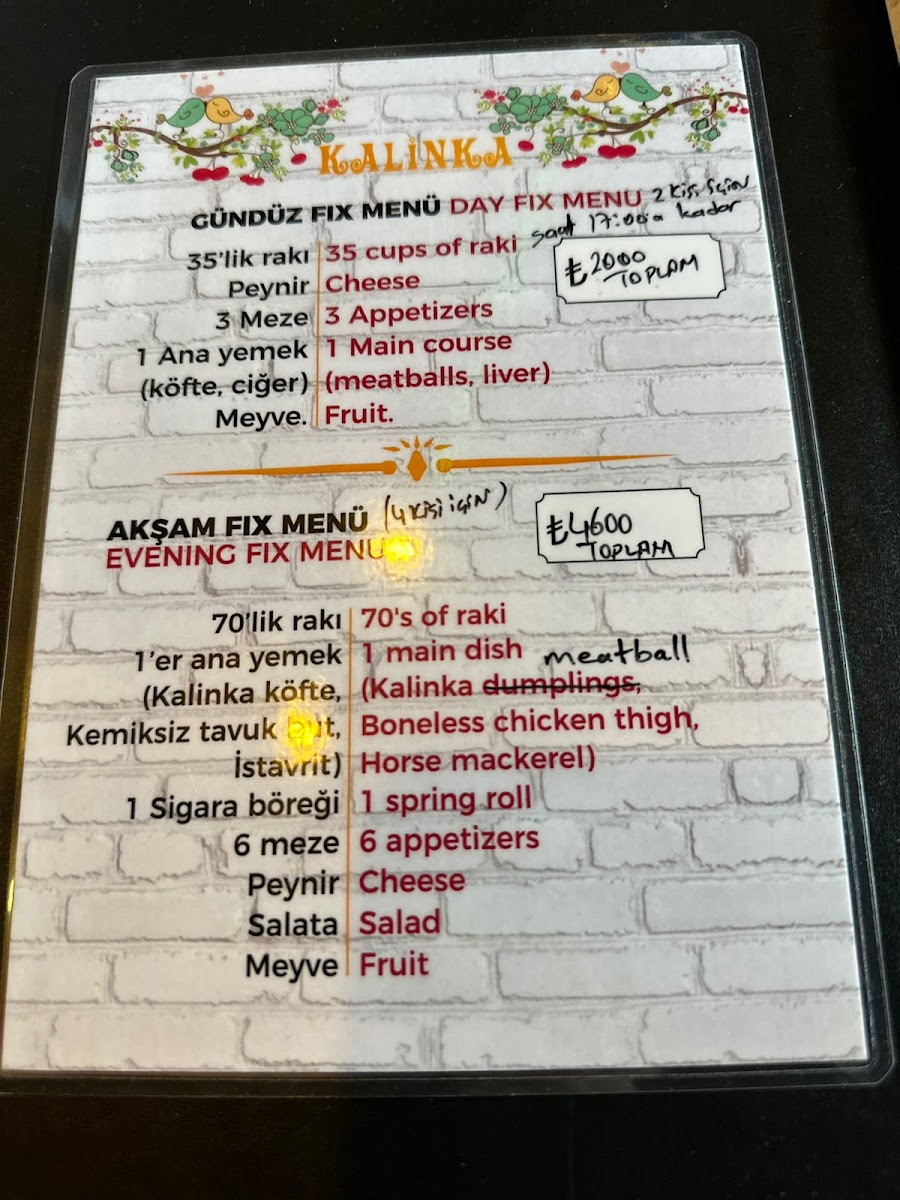 KALİNKA
GÜNDÜZ FIX MENÜ DAY FIX MENU 2 Kişi için
saat 17:00'a kadar
₺2000
TOPLAM
35'lik rakı 35 cups of raki
Peynir Cheese
3 Meze 3 Appetizers
1 Ana yemek 1 Main course
(köfte, ciğer) (meatballs, liver)
Meyve. Fruit.
AKŞAM FIX MENÜ (4 Kişi için)
EVENING FIX MENU
₺4600
TOPLAM
70'lik rakı 70's of raki
1'er ana yemek 1 main dish meatball
(Kalinka köfte, (Kalinka dumplings,
Kemiksiz tavuk but, Boneless chicken thigh,
İstavrit) Horse mackerel)
1 Sigara böreği 1 spring roll
6 meze 6 appetizers
Peynir Cheese
Salata Salad
Meyve Fruit